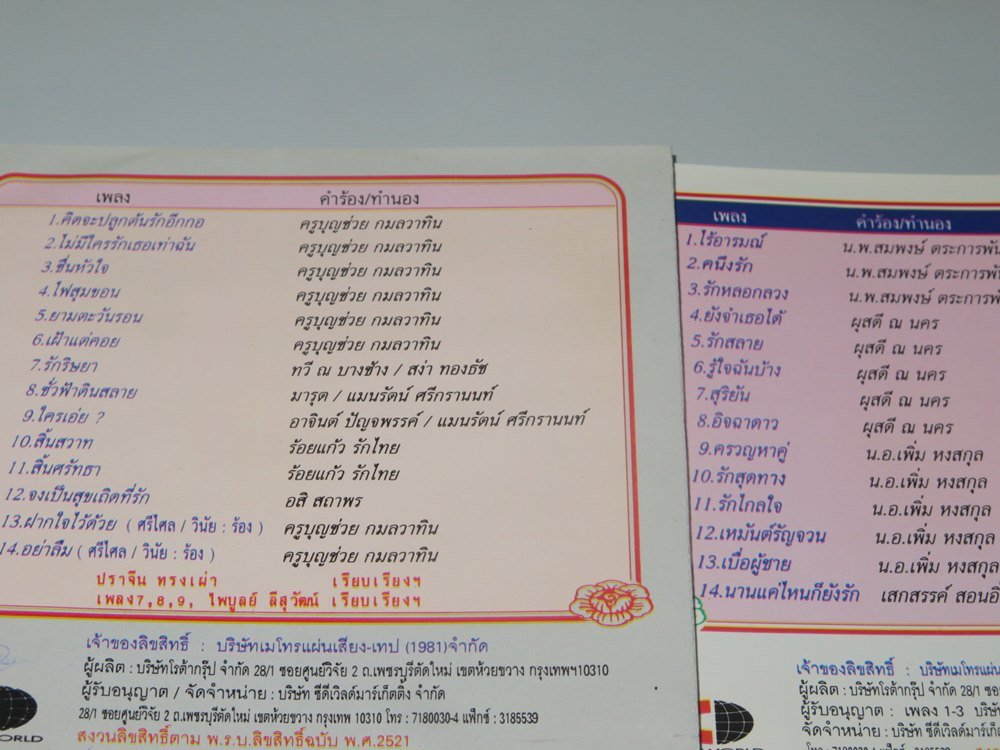 เพลง คำร้อง/ทำนอง
1.คิดจะปลูกต้นรักอีกกอ ครูบุญช่วย กมลวาทิน
2.ไม่มีใครรักเธอเท่าฉัน ครูบุญช่วย กมลวาทิน
3.ชื่นหัวใจ ครูบุญช่วย กมลวาทิน
4.ไฟสุมขอน ครูบุญช่วย กมลวาทิน
5.ยามตะวันรอน ครูบุญช่วย กมลวาทิน
6.เฝ้าแต่คอย ครูบุญช่วย กมลวาทิน
7.รักริษยา ทวี ณ บางช้าง / สง่า ทองธัช
8.ชั่วฟ้าดินสลาย มารุต / แมนรัตน์ ศรีกรานนท์
9.ใครเอ่ย ? อาจินต์ ปัญจพรรค์ / แมนรัตน์ ศรีกรานนท์
10.สิ้นสวาท ร้อยแก้ว รักไทย
11.สิ้นศรัทธา ร้อยแก้ว รักไทย
12.จงเป็นสุขเถิดที่รัก อสิ สถาพร
13.ฝากใจไว้ด้วย ( ศรีไศล / วินัย : ร้อง ) ครูบุญช่วย กมลวาทิน
14.อย่าลืม ( ศรีไศล / วินัย : ร้อง ) ครูบุญช่วย กมลวาทิน
ปราจีน ทรงเผ่า เรียบเรียงฯ
เพลง7,8,9, ไพบูลย์ ลีสุวัฒน์ เรียบเรียงฯ
เจ้าของลิขสิทธิ์ : บริษัทเมโทรแผ่นเสียง-เทป (1981)จำกัด
ผู้ผลิต : บริษัทโรต้ากรุ๊ป จำกัด 28/1 ซอยศูนย์วิจัย 2 ถ.เพชรบุรีตัดใหม่ เขตห้วยขวาง กรุงเทพฯ10310
ผู้รับอนุญาต / จัดจำหน่าย : บริษัท ซีดีเวิลด์มาร์เก็ตติ้ง จำกัด
28/1 ซอยศูนย์วิจัย 2 ถ.เพชรบุรีตัดใหม่ เขตห้วยขวาง กรุงเทพ 10310 โทร : 7180030-4 แฟ็กซ์ : 3185539
สงวนลิขสิทธิ์ตาม พ.ร.บ.ลิขสิทธิ์ฉบับ พ.ศ.2521
ORLD
เพลง คำร้อง/ทำนอง
1.ไร้อารมณ์ น.พ.สมพงษ์ ตระการพัน
2.คนึงรัก น.พ.สมพงษ์ ตระการพั
3.รักหลอกลวง น.พ.สมพงษ์ ตระการพั
4.ยังจำเธอได้ ผุสดี ณ นคร
5.รักสลาย ผุสดี ณ นคร
6.รู้ใจฉันบ้าง ผุสดี ณ นคร
7.สุริยัน ผุสดี ณ นคร
8.อิจฉาดาว ผุสดี ณ นคร
9.ครวญหาคู่ น.อ.เพิ่ม หงสกุล
10.รักสุดทาง น.อ.เพิ่ม หงสกุล
11.รักไกลใจ น.อ.เพิ่ม หงสกุล
12.เหมันต์รัญจวน น.อ.เพิ่ม หงสกุล
13.เบื่อผู้ชาย น.อ.เพิ่ม หงสกุล
14.นานแค่ไหนก็ยังรัก เสกสรรค์ สอนอิ
เจ้าของลิขสิทธิ์ : บริษัทเมโทรแผ่น
ผู้ผลิต : บริษัทโรต้ากรุ๊ป จำกัด 28/1 ซอย
ผู้รับอนุญาต : เพลง 1-3 บริษั
จัดจำหน่าย : บริษัท ซีดีเวิลด์มาร์เก็
WORLD